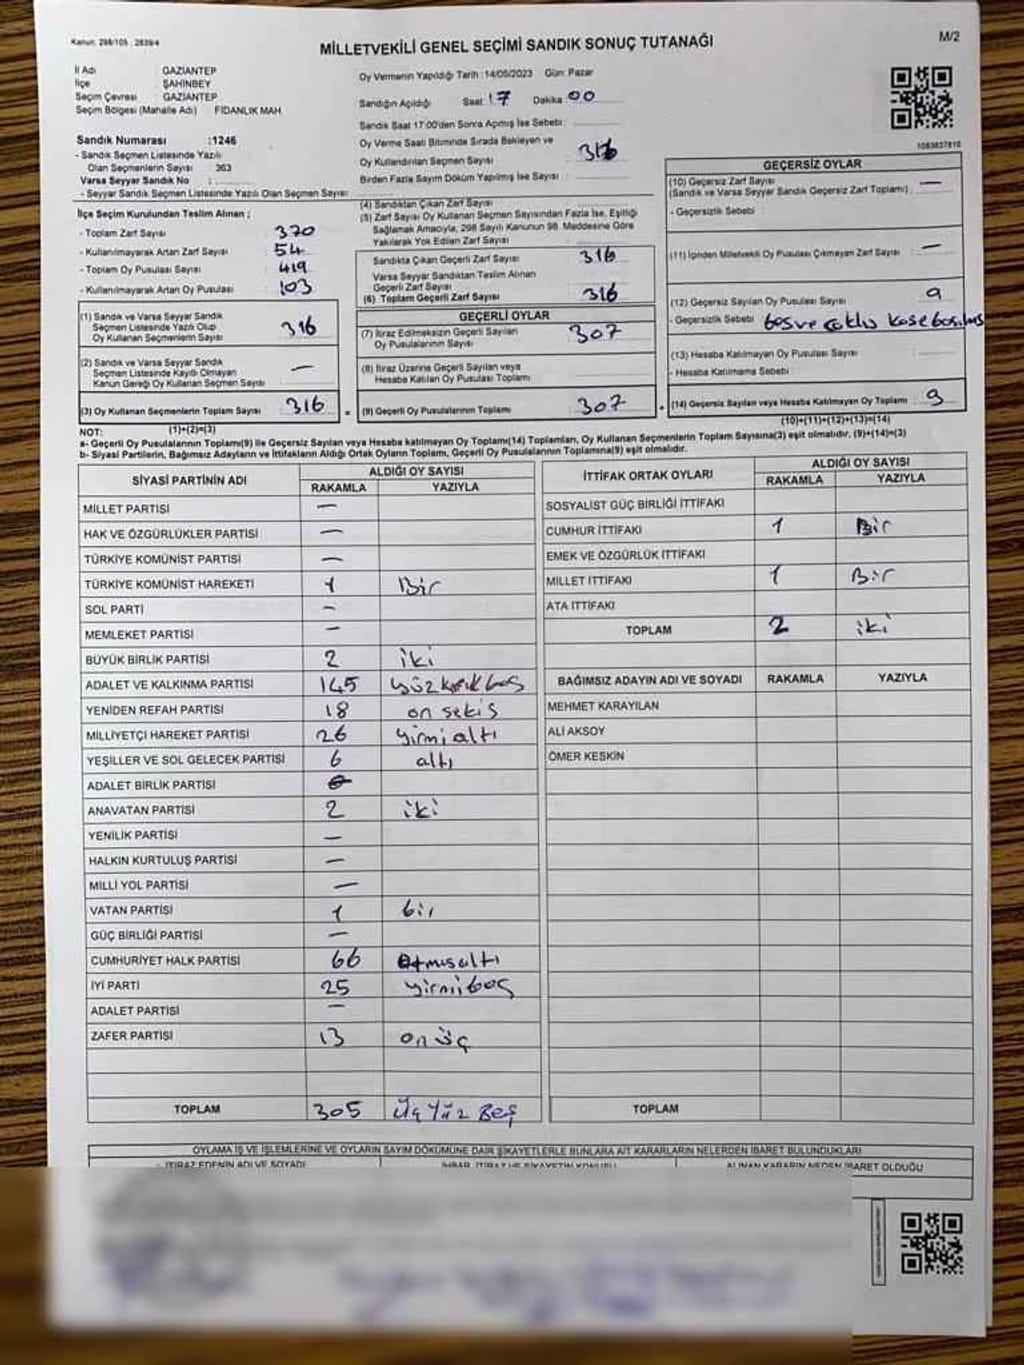 Kanun: 298/105 , 2839/4
MİLLETVEKİLİ GENEL SEÇİMİ SANDIK SONUÇ TUTANAĞI
M/2
İl Adı GAZİANTEP
İlçe ŞAHİNBEY
Seçim Çevresi GAZİANTEP
Seçim Bölgesi (Mahalle Adı) FİDANLIK MAH
Sandık Numarası :1246
- Sandık Seçmen Listesinde Yazılı
Olan Seçmenlerin Sayısı : 363
Varsa Seyyar Sandık No :
- Seyyar Sandık Seçmen Listesinde Yazılı Olan Seçmen Sayısı:
İlçe Seçim Kurulundan Teslim Alınan ;
- Toplam Zarf Sayısı 370
- Kullanılmayarak Artan Zarf Sayısı 54
- Toplam Oy Pusulası Sayısı 419
- Kullanılmayarak Artan Oy Pusulası 103
(1) Sandık ve Varsa Seyyar Sandık
Seçmen Listesinde Yazılı Olup
Oy Kullanan Seçmenlerin Sayısı 316
(2) Sandık ve Varsa Seyyar Sandık
Seçmen Listesinde Kayıtlı Olmayan
Kanun Gereği Oy Kullanan Seçmen Sayısı —
(3) Oy Kullanan Seçmenlerin Toplam Sayısı 316
(1)+(2)=(3)
Oy Vermenin Yapıldığı Tarih :14/05/2023 Gün: Pazar
Sandığın Açıldığı Saat: 17 Dakika: 00
Sandık Saat 17:00'den Sonra Açmış İse Sebebi:
Oy Verme Saati Bitiminde Sırada Bekleyen ve
Oy Kullandırılan Seçmen Sayısı 316
Birden Fazla Sayım Döküm Yapılmış İse Sayısı :
(4) Sandıktan Çıkan Zarf Sayısı
(5) Zarf Sayısı Oy Kullanan Seçmen Sayısından Fazla İse, Eşitliği
Sağlamak Amacıyla; 298 Sayılı Kanunun 98. Maddesine Göre
Yakılarak Yok Edilen Zarf Sayısı
Sandıkta Çıkan Geçerli Zarf Sayısı 316
Varsa Seyyar Sandıktan Teslim Alınan
Geçerli Zarf Sayısı
(6) Toplam Geçerli Zarf Sayısı 316
GEÇERLİ OYLAR
(7) İtiraz Edilmeksizin Geçerli Sayılan
Oy Pusulalarının Sayısı 307
(8) İtiraz Üzerine Geçerli Sayılan veya
Hesaba Katılan Oy Pusulası Toplamı
= (9) Geçerli Oy Pusulalarının Toplamı 307
1083837810
GEÇERSİZ OYLAR
(10) Geçersiz Zarf Sayısı —
(Sandık ve Varsa Seyyar Sandık Geçersiz Zarf Toplamı)
- Geçersizlik Sebebi :
(11) İçinden Milletvekili Oy Pusulası Çıkmayan Zarf Sayısı —
(12) Geçersiz Sayılan Oy Pusulası Sayısı 9
- Geçersizlik Sebebi
(13) Hesaba Katılmayan Oy Pusulası Sayısı
- Hesaba Katılmama Sebebi
+ (14) Geçersiz Sayılan veya Hesaba Katılmayan Oy Toplamı : 9
(10)+(11)+(12)+(13)=(14)
NOT:
a- Geçerli Oy Pusulalarının Toplamı(9) ile Geçersiz Sayılan veya Hesaba katılmayan Oy Toplamı(14) Toplamları, Oy Kullanan Seçmenlerin Toplam Sayısına(3) eşit olmalıdır. (9)+(14)=(3)
b- Siyasi Partilerin, Bağımsız Adayların ve İttifakların Aldığı Ortak Oyların Toplamı, Geçerli Oy Pusulalarının Toplamına(9) eşit olmalıdır.
SİYASİ PARTİNİN ADI ALDIĞI OY SAYISI
RAKAMLA YAZIYLA
MİLLET PARTİSİ —
HAK VE ÖZGÜRLÜKLER PARTİSİ —
TÜRKİYE KOMÜNİST PARTİSİ —
TÜRKİYE KOMÜNİST HAREKETİ 1 Bir
SOL PARTİ —
MEMLEKET PARTİSİ —
BÜYÜK BİRLİK PARTİSİ 2 iki
ADALET VE KALKINMA PARTİSİ 145 yüzkırkbeş
YENİDEN REFAH PARTİSİ 18 on sekiz
MİLLİYETÇİ HAREKET PARTİSİ 26 yirmi altı
YEŞİLLER VE SOL GELECEK PARTİSİ 6 altı
ADALET BİRLİK PARTİSİ
ANAVATAN PARTİSİ 2 iki
YENİLİK PARTİSİ —
HALKIN KURTULUŞ PARTİSİ —
MİLLİ YOL PARTİSİ —
VATAN PARTİSİ 1 bir
GÜÇ BİRLİĞİ PARTİSİ —
CUMHURİYET HALK PARTİSİ 66 Atmısaltı
İYİ PARTİ 25 yirmibeş
ADALET PARTİSİ —
ZAFER PARTİSİ 13 on üç
TOPLAM 305 Üç Yüz Beş
İTTİFAK ORTAK OYLARI ALDIĞI OY SAYISI
RAKAMLA YAZIYLA
SOSYALİST GÜÇ BİRLİĞİ İTTİFAKI
CUMHUR İTTİFAKI 1 Bir
EMEK VE ÖZGÜRLÜK İTTİFAKI
MİLLET İTTİFAKI 1 Bir
ATA İTTİFAKI
TOPLAM 2 iki
BAĞIMSIZ ADAYIN ADI VE SOYADI RAKAMLA YAZIYLA
MEHMET KARAYILAN
ALİ AKSOY
ÖMER KESKİN
TOPLAM
OYLAMA İŞ VE İŞLEMLERİNE VE OYLARIN SAYIM DÖKÜMÜNE DAİR ŞİKAYETLERLE BUNLARA AİT KARARLARIN NELERDEN İBARET BULUNDUKLARI
- İTİRAZ EDENİN ADI VE SOYADI İHBAR, İTİRAZ VE ŞİKAYETİN KONUSU ALINAN KARARIN NEDEN İBARET OLDUĞU